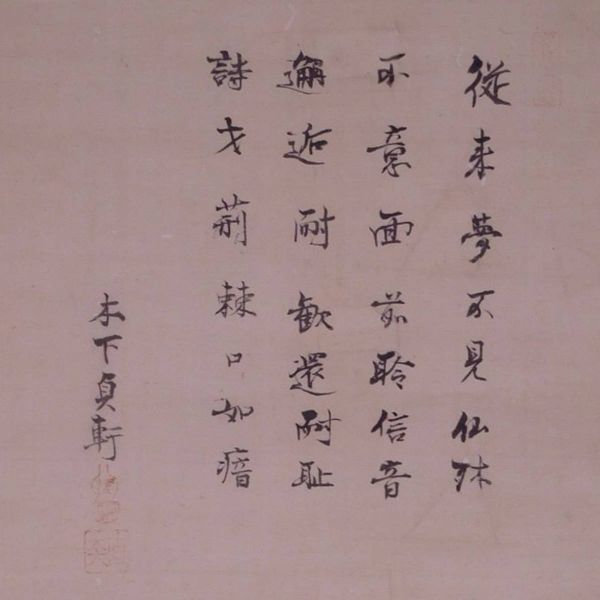 從来夢不見仙
不意面前聆信音
邂逅耐歓還耐耻
詩才荊棘口如瘖
木下貞軒